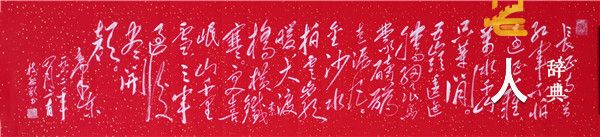 长征
红军不怕
远征难
万水千山
只等闲
五岭逶迤
腾细浪乌
蒙磅礴
走泥丸
金沙水
拍云崖
暖大渡
桥横铁索
寒更喜
岷山千里
雪三军
过后
尽开
颜
人
辞典